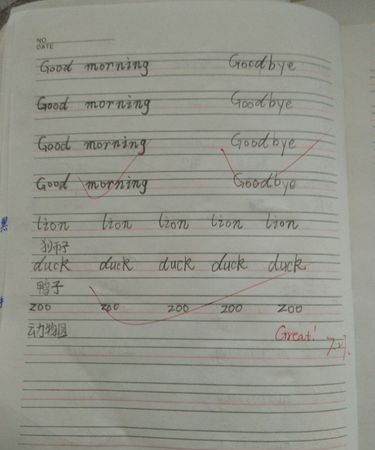 NO.
DATE
Good morning Goodbye
Good morning Goodbye
Good morning Goodbye
Good morning Goodbye
lion lion lion lion lion
狮子
duck duck duck duck duck
鸭子
zoo zoo zoo zoo zoo
动物园
Great!